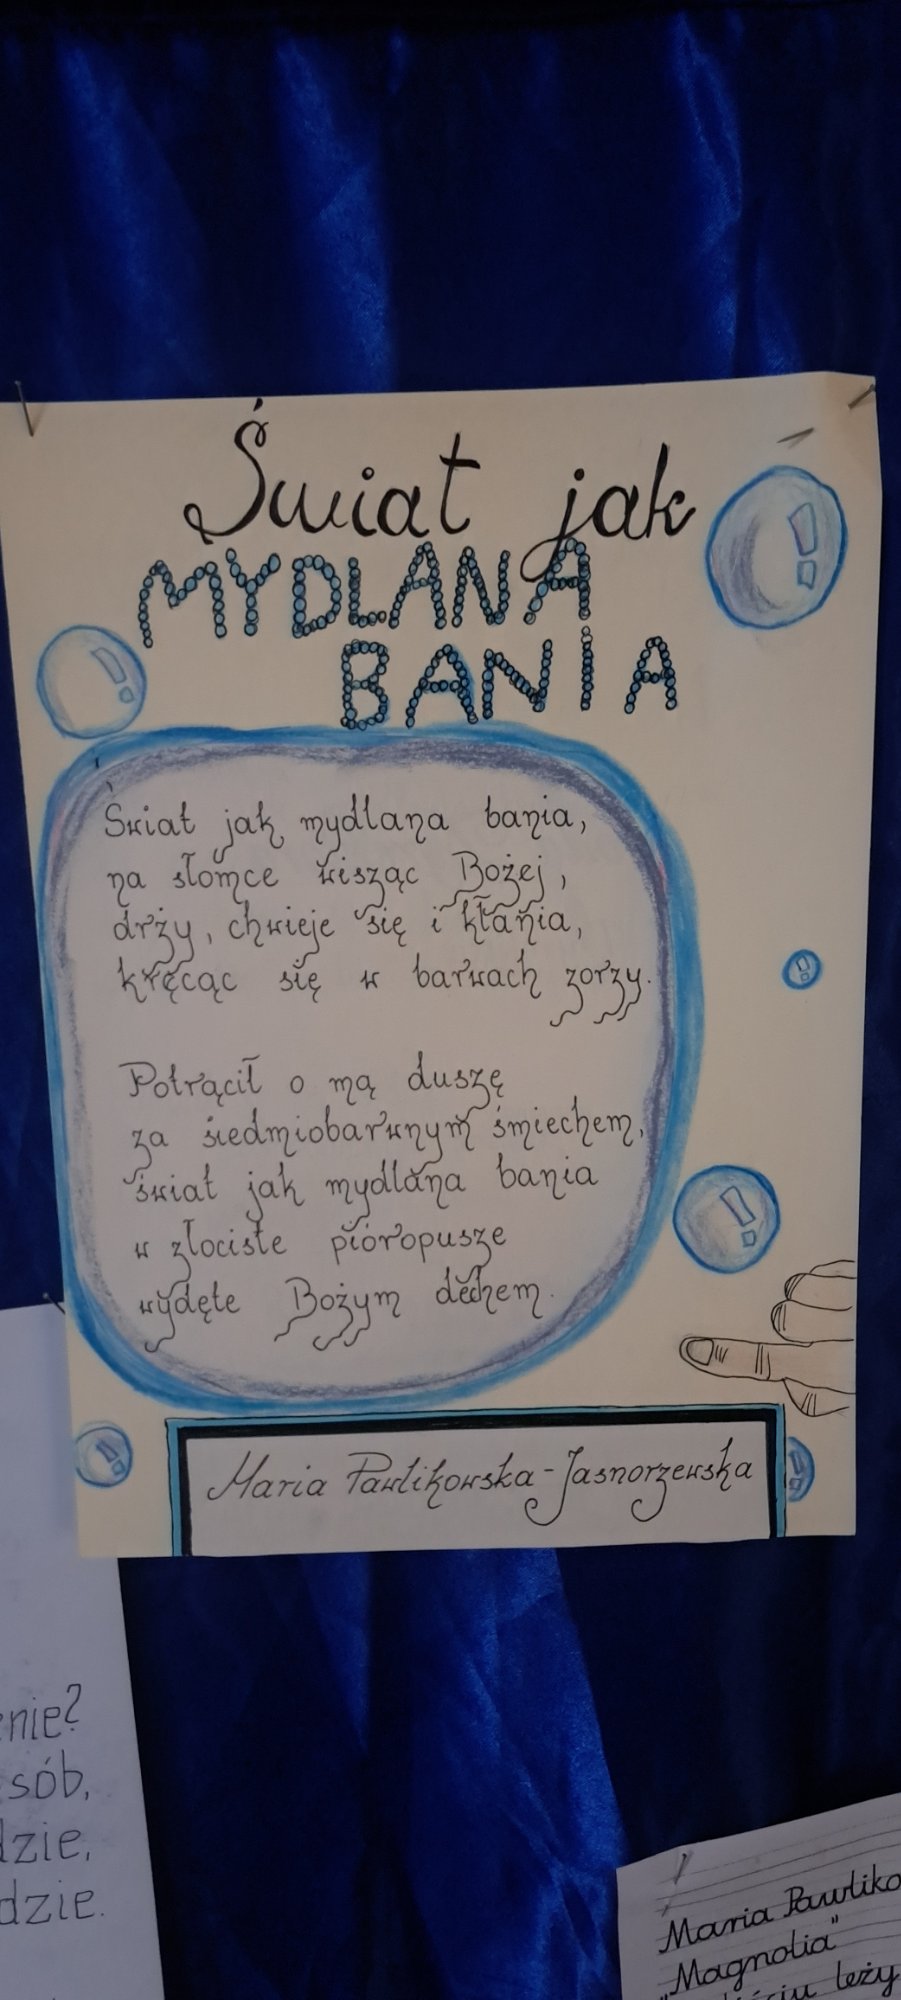 Świat jak
MYDLANA
BANIA
Świat jak mydlana bania,
na słomce wisząc Bożej,
drży, chwieje się i kłania,
kręcąc się w barwach zorzy.
Potrącił o mą duszę
za siedmiobarwnym śmiechem,
świat jak mydlana bania
w złociste pióropusze
wydęte Bożym dechem.
Maria Pawlikowska-Jasnorzewska
sób,
Maria Pawliko
"Magnolia"
leży